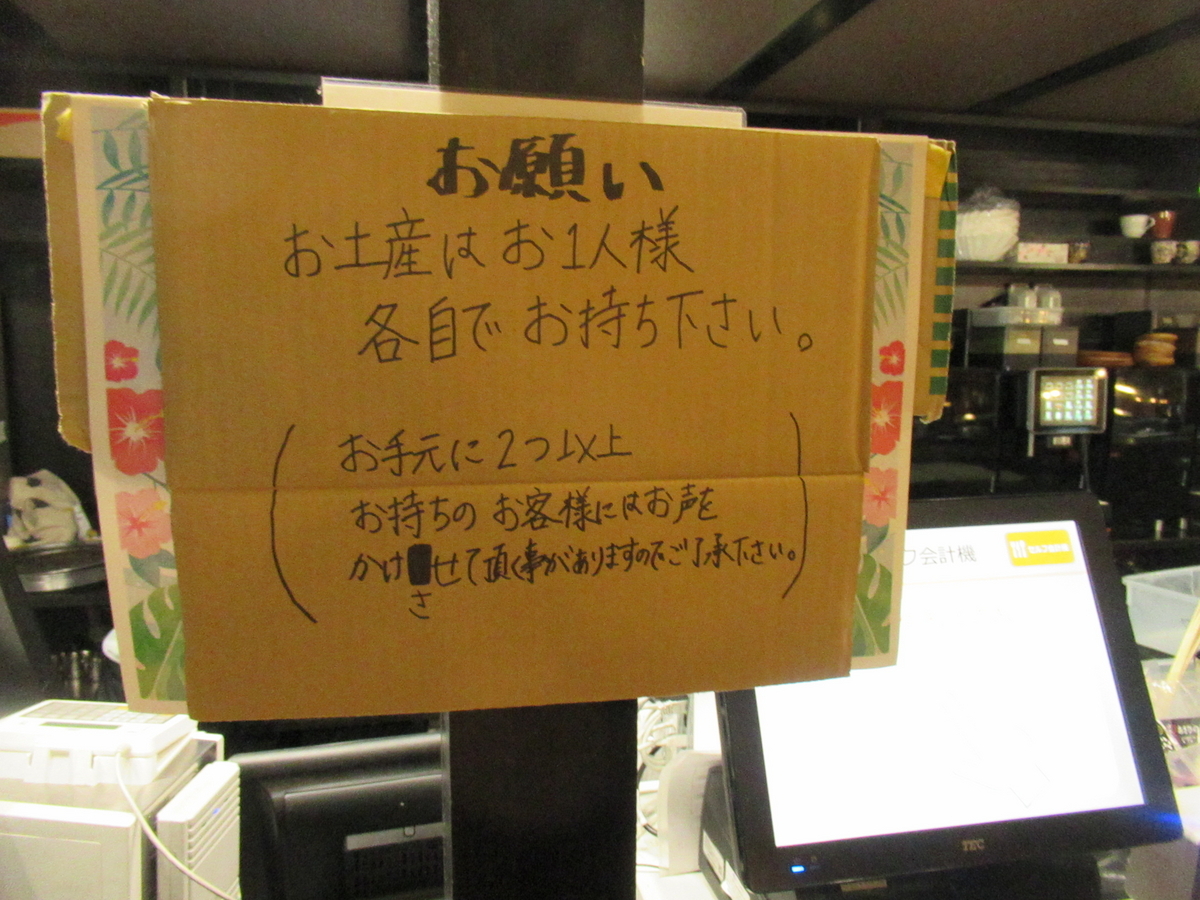 お願い
お土産はお1人様
各自でお持ち下さい。
(お手元に2つ以上
お持ちのお客様にはお声を
かけさせて頂く事がありますのでご了承下さい。)
フ会計機
TEC